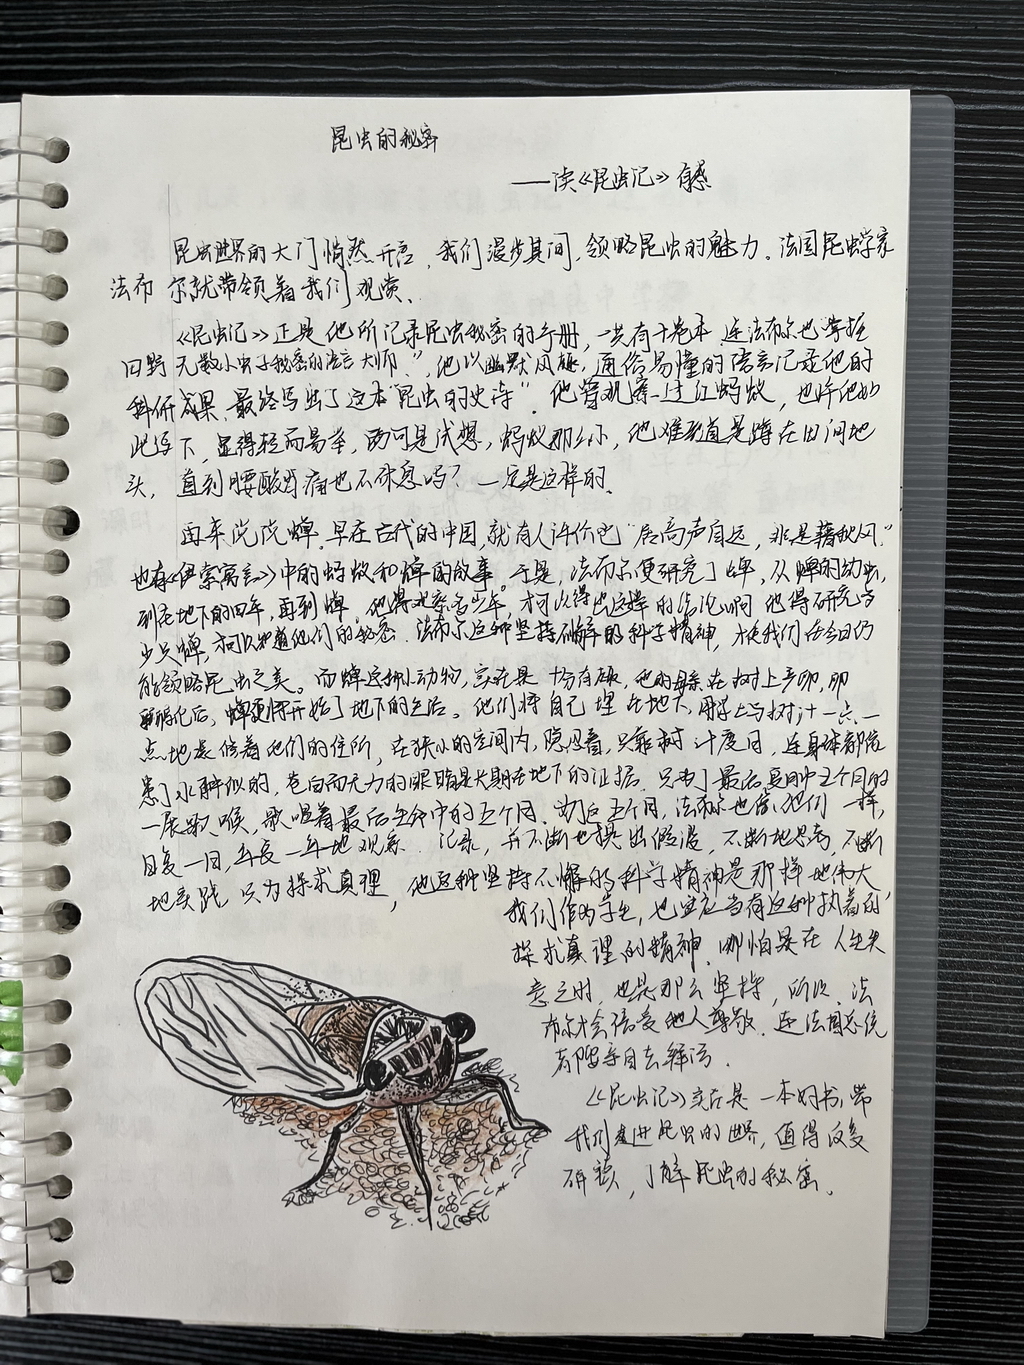 昆虫的秘密
——读《昆虫记》有感
昆虫世界的大门悄然开启，我们漫步其间，领略昆虫的魅力。法国昆虫学家
法布尔就带领着我们观赏、
《昆虫记》正是他所记录昆虫秘密的手册，一共有十卷本，连法布尔也“掌握
田野无数小虫子秘密的语言大师”，他以幽默风趣，通俗易懂的语言记录他的
科研成果，最终写出了这本“昆虫的史诗”。他曾观察过红蚂蚁，也许他的
此写下，显得轻而易举，两可是试想，蚂蚁那么小，他难道直是蹲在田间地
头，直到腰酸背痛也不休息吗？一定是这样的。
再来说说蝉，早在古代的中国，就有人评价它“居高声自远，非是藉秋风”
也有《伊索寓言》中的蚂蚁和蝉的故事。于是，法布尔便研究了蝉，从蝉的幼虫，
到在地下的四年，再到蝉，他得观察多少年，才可以得出这样的结论啊，他得研究多
少只蝉，才可以知道他们的秘密。法布尔这种坚持不懈的科学精神，才使我们在今日仍
能领略昆虫之美。而蝉这种小动物，实在是十分有趣，他的母亲在树上产卵，卵
孵化后，蝉便将开始了地下的生活。他们将自己埋在地下，用身上与树汁一点一
点地装修着他们的住所，在狭小的空间内，隐忍着，只靠树汁度日，连身体都像
患了水肿似的，苍白而无力的眼睛是长期在地下的证据。只为了最后夏日中五个月的
一展歌喉，歌唱着最后生命中的五个月。为了五个月，法布尔也像他们一样，
日复一日，年复一年地观察、记录，并不断地提出假设，不断地思考，不断
地实践，只为探求真理，他这种坚持不懈的科学精神是那样地伟大，
我们作为学生，也实应当有这种执着的，
探求真理的精神，哪怕是在人生失
意之时，也是那么坚持，所以，法
布尔才会倍受他人尊敬，连法国总统
都亲自去
《昆虫记》实在是一本好书，带
我们走进昆虫的世界，值得反复
研读，了解昆虫的秘密。